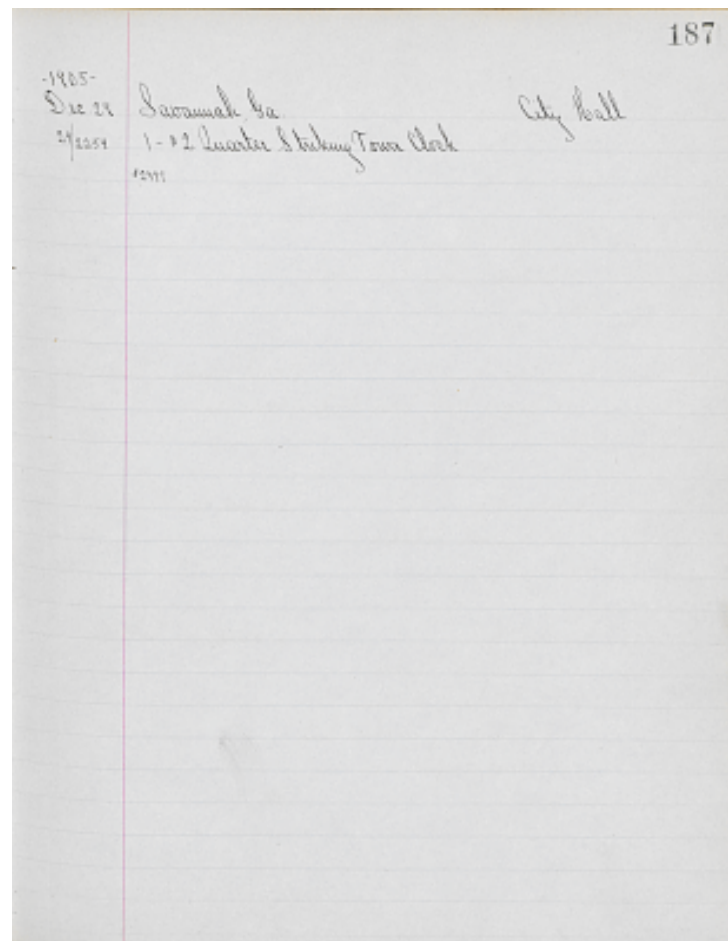 187
-1905-
Dec 29 Savannah, Ga. City Hall
1 - #2 Quarter Striking Tower Clock